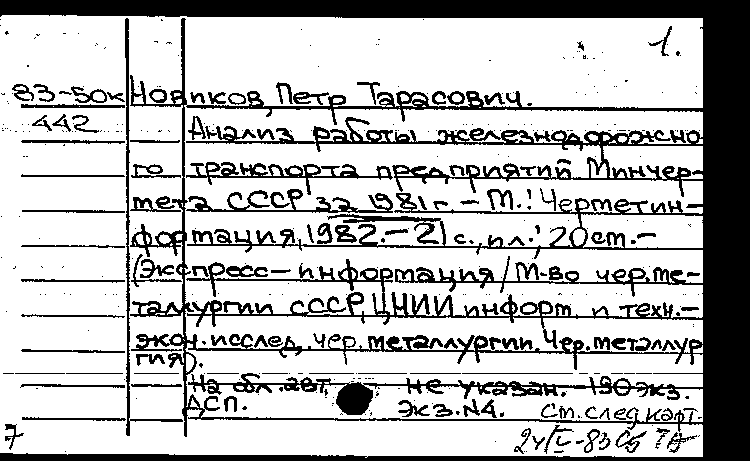 1.
83-50к Новиков, Петр Тарасович.
442 Анализ работы железнодорожно
го транспорта предприятий Минчер-
мета СССР за 1981 г. - М.: Черметин-
формация, 1982. - 21 с., ил.; 20 см. -
(Экспресс-информация / М-во чер. ме-
таллургии СССР, ЦНИИ информ. и техн.-
экон. исслед. чер. металлургии. Чер. металлур
гия).
На обл. авт. не указан. - 190 экз.
ДСП. Экз. №4. См. след карт.
7